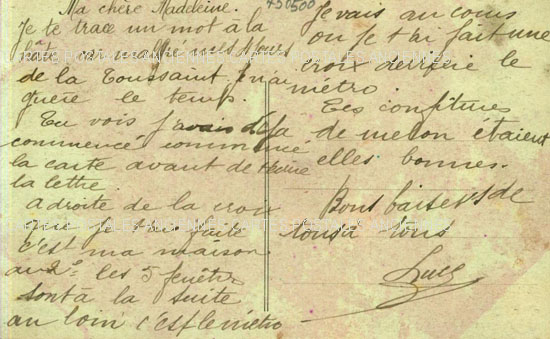 Ma chère Madeleine.
Je te trace un mot à la
hâte car malgré mes fleurs
de la Toussaint je n'ai
guère le temps.
Tu vois j'avais déja
commencé
la carte avant de
la lettre.
a droite de la croix
que je fait
c'est ma maison
au 2º. les 5 fenêtres
sont à la suite
au loin c'est le métro
450500
Je vais au cours
ou je t'ai fait une
croix derrière le
métro.
Tes confitures
de melon étaient
elles bonnes.
Bons baisers de
tous à tous